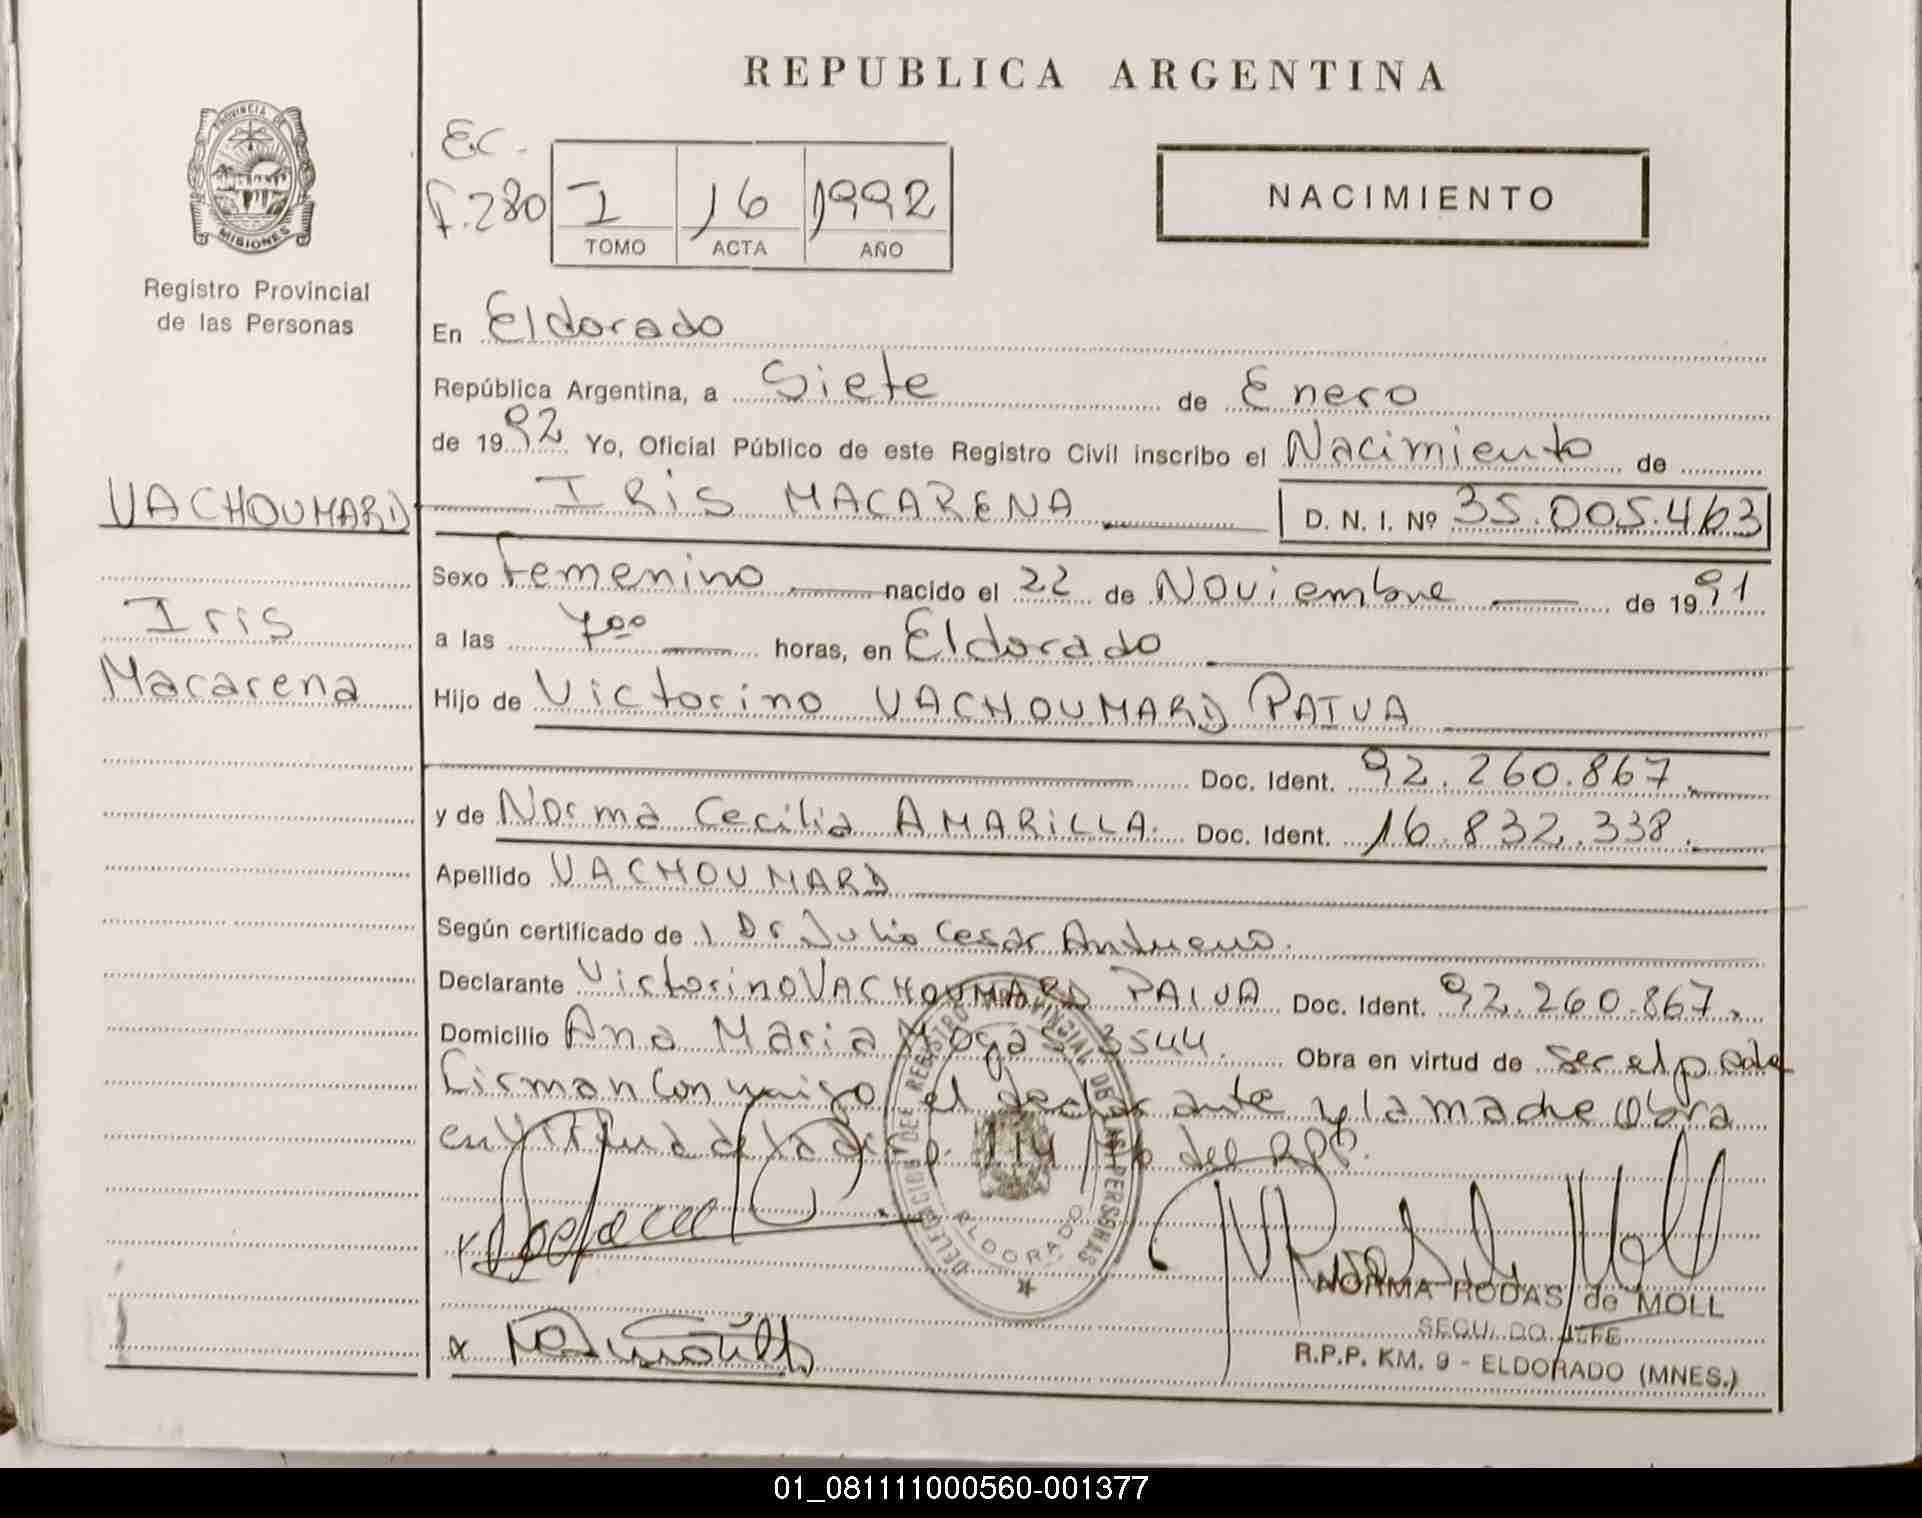 REPUBLICA ARGENTINA
PROVINCIA DE
MISIONES
Registro Provincial
de las Personas
Ec.
F.280
I 16 1992
TOMO ACTA AÑO
NACIMIENTO
En Eldorado
República Argentina, a Siete de Enero
de 1992 Yo, Oficial Público de este Registro Civil inscribo el Nacimiento de
VACHOUMARD
IRIS MACARENA D. N. I. Nº 35.005.463
Sexo Femenino nacido el 22 de Noviembre de 1991
Iris
a las 7 00 horas, en Eldorado
Macarena
Hijo de Victorino VACHOUMARD PAIVA
Doc. Ident. 92.260.867.
y de Norma Cecilia AMARILLA. Doc. Ident. 16.832.338.
Apellido VACHOUMARD
Según certificado de 1 Dr Julio Cesar
Declarante Victorino VACHOUMARD PAIVA Doc. Ident. 92.260.867.
Domicilio Ana Maria Mogas 3544. Obra en virtud de ser el padre
Firman conmigo el declarante y la madre obra
en virtud de la disp. 114 del RPP.
REGISTRO PROVINCIAL DE LAS PERSONAS
ELDORADO
NORMA RODAS de MOLL
SEGUNDO JEFE
R.P.P. KM. 9 - ELDORADO (MNES.)
01_081111000560-001377